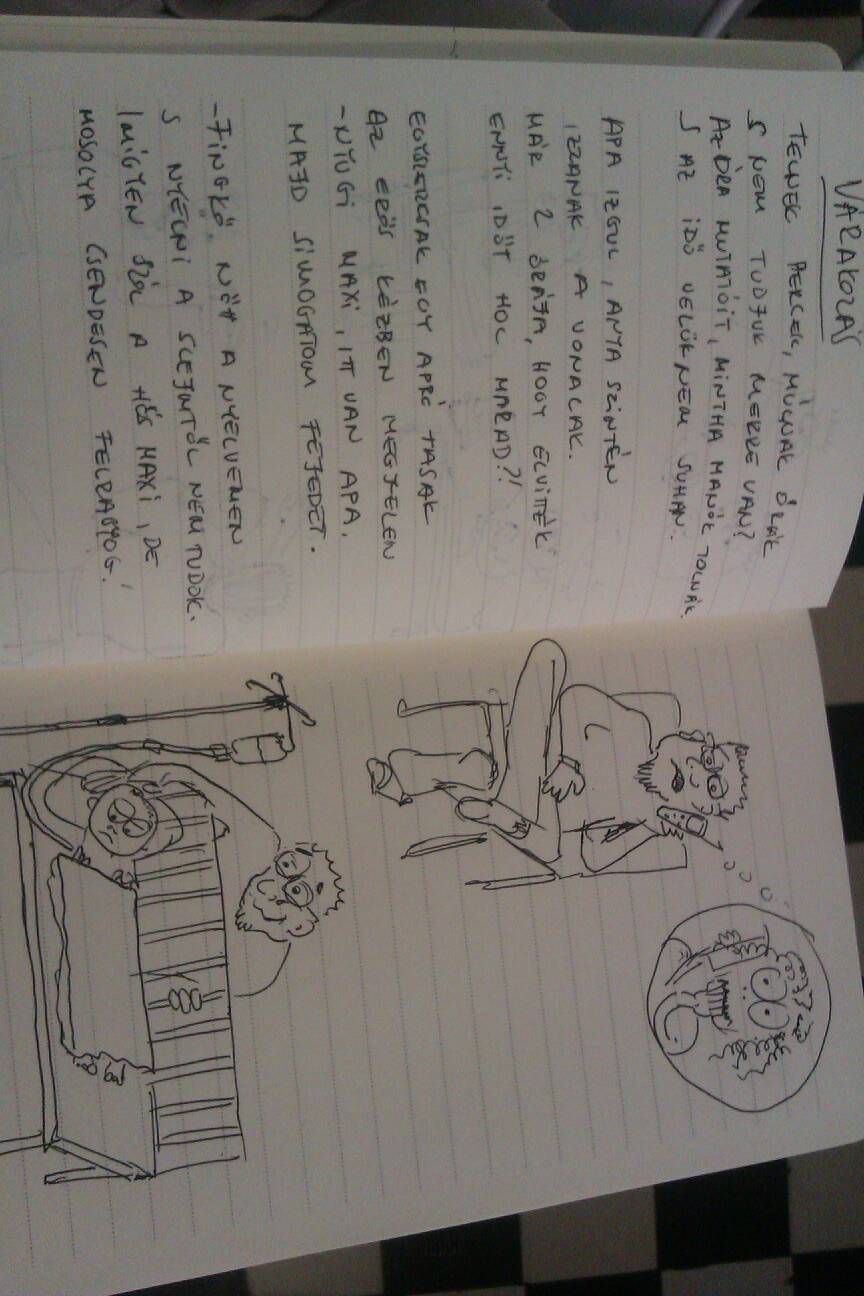 VÁRAKOZÁS
TELNEK PERCEK, MÚLNAK ÓRÁK
S NEM TUDJUK MERRE VAN?
AZ ÓRA MUTATÓIT, MINTHA MANÓK TOLNÁK
S AZ IDŐ VELÜK NEM SUHAN.
APA IZGUL, ANYA SZINTÉN
IZZANAK A VONALAK.
MÁR 2 ÓRÁJA, HOGY ELVITTÉK
ENNYI IDŐT HOL MARAD?!
EGYSZERCSAK EGY APRÓ TASAK
AZ ERŐS KÉZBEN MEGJELEN
- NYUGI MAXI, ITT VAN APA,
MAJD SIMOGATOM FEJEDET.
- FINGKŐ NŐTT A NYELVEMEN
S NYELNI A SLEJMTŐL NEM TUDOK.
IMÍGYEN SZÓL A HŐS MAXI, DE
MOSOLYA CSENDESEN FELRAGYOG!